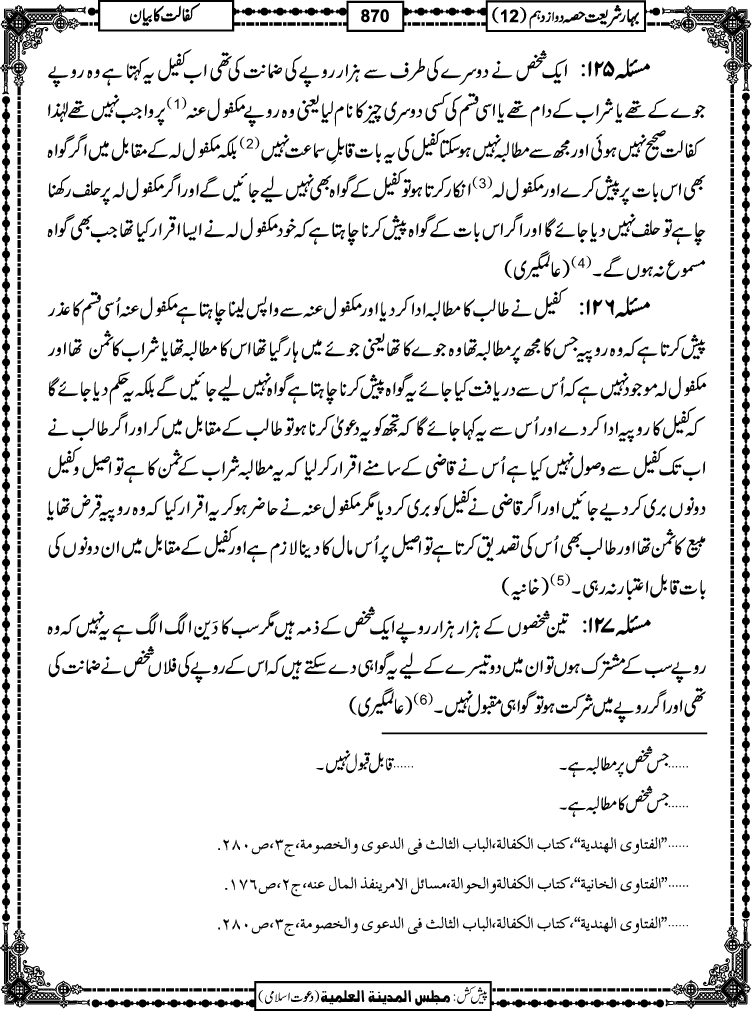 بہار شریعت حصہ دوازدہم (12)
870
کفالت کا بیان
مسئلہ ۱۲۵: ایک شخص نے دوسرے کی طرف سے ہزار روپے کی ضمانت کی تھی اب کفیل یہ کہتا ہے وہ روپے
جوے کے تھے یا شراب کے دام تھے یا اسی قسم کی کسی دوسری چیز کا نام لیا یعنی وہ روپے مکفول عنہ (1) پر واجب نہیں تھے لہٰذا
کفالت صحیح نہیں ہوئی اور مجھ سے مطالبہ نہیں ہوسکتا کفیل کی یہ بات قابلِ سماعت نہیں (2) بلکہ مکفول لہ کے مقابل میں اگر گواہ
بھی اس بات پر پیش کرے اور مکفول لہ (3) انکار کرتا ہو تو کفیل کے گواہ بھی نہیں لیے جائیں گے اور اگر مکفول لہ پر حلف رکھنا
چاہے تو حلف نہیں دیا جائے گا اور اگر اس بات کے گواہ پیش کرنا چاہتا ہے کہ خود مکفول لہ نے ایسا اقرار کیا تھا جب بھی گواہ
مسموع نہ ہوں گے۔ (4) (عالمگیری)
مسئلہ ۱۲۶: کفیل نے طالب کا مطالبہ ادا کردیا اور مکفول عنہ سے واپس لینا چاہتا ہے مکفول عنہ اُسی قسم کا عذر
پیش کرتا ہے کہ وہ روپیہ جس کا مجھ پر مطالبہ تھا وہ جوے کا تھا یعنی جوئے میں ہار گیا تھا اس کا مطالبہ تھا یا شراب کا ثمن تھا اور
مکفول لہ موجود نہیں ہے کہ اُس سے دریافت کیا جائے یہ گواہ پیش کرنا چاہتا ہے گواہ نہیں لیے جائیں گے بلکہ یہ حکم دیا جائے گا
کہ کفیل کا روپیہ ادا کردے اور اُس سے یہ کہا جائے گا کہ تجھ کو یہ دعویٰ کرنا ہو تو طالب کے مقابل میں کر اور اگر طالب نے
اب تک کفیل سے وصول نہیں کیا ہے اُس نے قاضی کے سامنے اقرار کرلیا کہ یہ مطالبہ شراب کے ثمن کا ہے تو اصیل و کفیل
دونوں بری کردیے جائیں اور اگر قاضی نے کفیل کو بری کردیا مگر مکفول عنہ نے حاضر ہوکر یہ اقرار کیا کہ وہ روپیہ قرض تھا یا
مبیع کا ثمن تھا اور طالب بھی اُس کی تصدیق کرتا ہے تو اصیل پر اُس مال کا دینا لازم ہے اور کفیل کے مقابل میں ان دونوں کی
بات قابل اعتبار نہ رہی۔ (5) (خانیہ)
مسئلہ ۱۲۷: تین شخصوں کے ہزار ہزار روپے ایک شخص کے ذمہ ہیں مگر سب کا دَین الگ الگ ہے یہ نہیں کہ وہ
روپے سب کے مشترک ہوں تو ان میں دو تیسرے کے لیے یہ گواہی دے سکتے ہیں کہ اس کے روپے کی فلاں شخص نے ضمانت کی
تھی اور اگر روپے میں شرکت ہو تو گواہی مقبول نہیں۔ (6) (عالمگیری)
......جس شخص پر مطالبہ ہے۔ ......قابل قبول نہیں۔
......جس شخص کا مطالبہ ہے۔
......”الفتاوی الهندية“، كتاب الكفالة،الباب الثالث فی الدعوی والخصومة،ج۳،ص۲۸۰.
......”الفتاوی الخانية“، كتاب الكفالةوالحوالة،مسائل الامربنفذ المال عنه،ج۲،ص۱۷٦.
......”الفتاوی الهندية“، كتاب الكفالة،الباب الثالث فی الدعوی والخصومة،ج۳،ص۲۸۰.
پیش کش: مجلس المدينة العلمية (دعوت اسلامی)